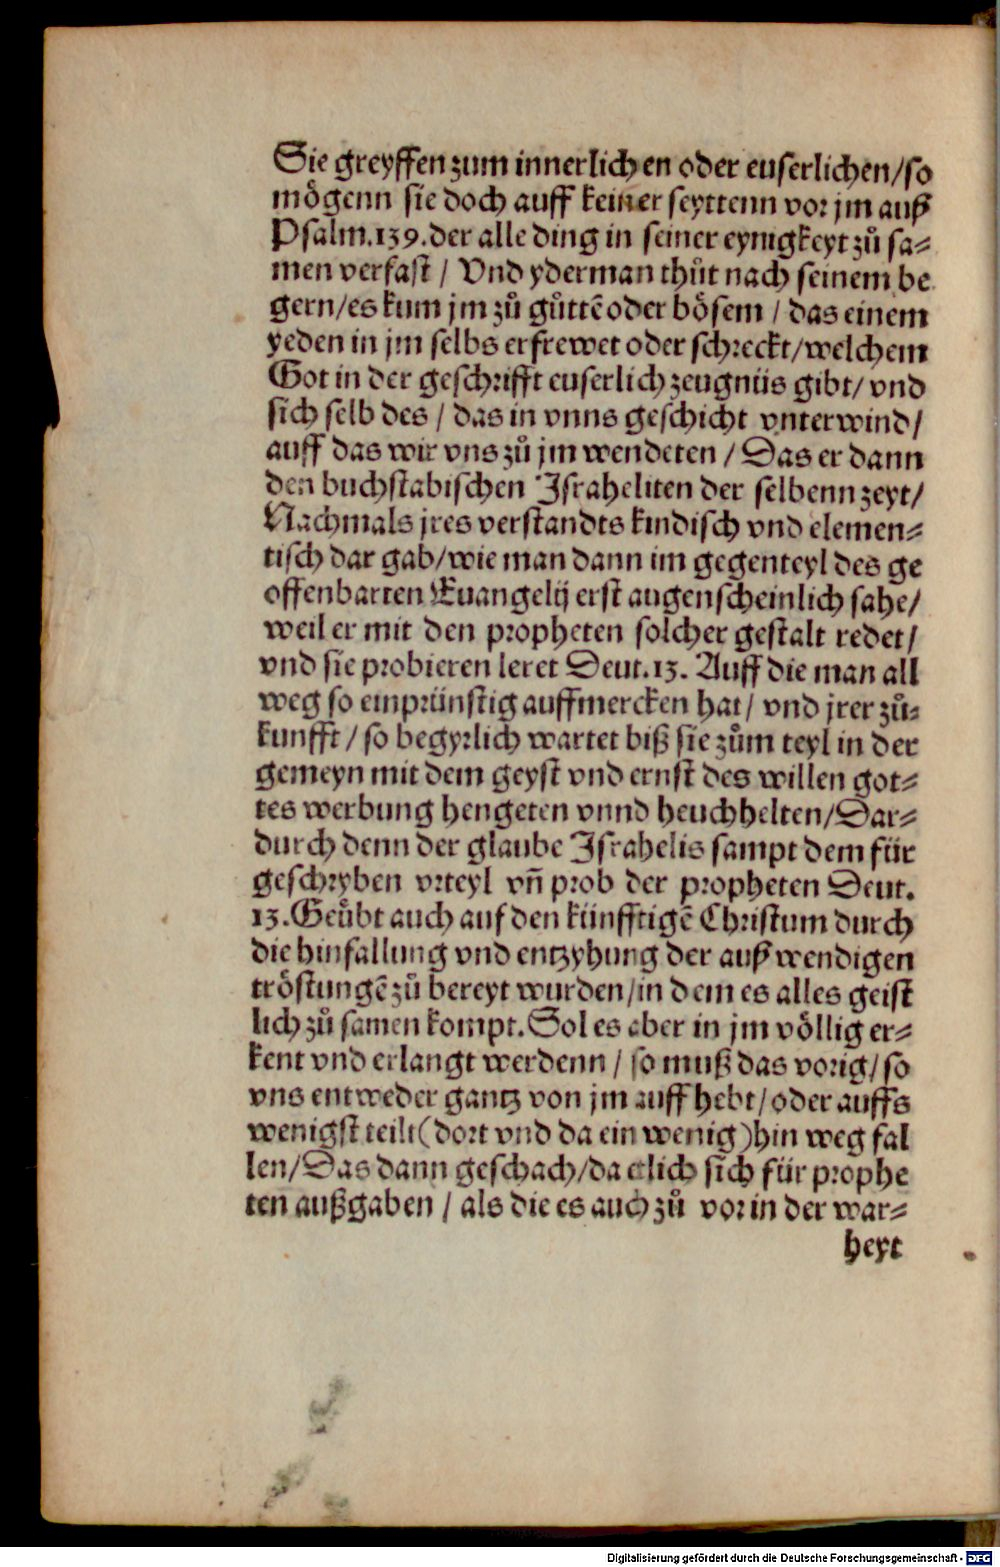 Sie greyffen zum innerlichen oder euserlichen/so
mögenn sie doch auff keiner seyttenn vor jm auß
Psalm.139.der alle ding in seiner eynigkeyt zů sa⸗
men verfast / Vnd yderman thůt nach seinem be
gern/es kum jm zů gůttē oder bösem / das einem
yeden in jm selbs erfrewet oder schreckt/welchem
Got in der geschrifft euserlich zeugnüs gibt/ vnd
sich selb des / das in vnns geschicht vnterwind/
auff das wir vns zů jm wendeten / Das er dann
den buchstabischen Israheliten der selbenn zeyt/
Nachmals jres verstandts kindisch vnd elemen⸗
tisch dar gab/wie man dann im gegenteyl des ge
offenbarten Euangelij erst augenscheinlich sahe/
weil er mit den propheten solcher gestalt redet/
vnd sie probieren leret Deut.13. Auff die man all
weg so einprünstig auffmercken hat/ vnd jrer zů⸗
kunfft/so begyrlich wartet biß sie zům teyl in der
gemeyn mit dem geyst vnd ernst des willen got⸗
tes werbung hengeten vnnd heuchhelten/Dar⸗
durch denn der glaube Israhelis sampt dem für
geschryben vrteyl vñ prob der propheten Deut.
13.Geůbt auch auf den künfftigē Christum durch
die hinfallung vnd entzyhung der außwendigen
tröstungē zů bereyt wurden/in dem es alles geist
lich zů samen kompt.Sol es aber in jm völlig er⸗
kent vnd erlangt werdenn / so muß das vorig/so
vns entweder gantz von jm auff hebt/oder auffs
wenigst teilt(dort vnd da ein wenig)hin weg fal
len/Das dann geschach/da etlich sich für prophe
ten außgaben / als die es auch zů vor in der war⸗
heyt
Digitalisierung gefördert durch die Deutsche Forschungsgemeinschaft - DFG